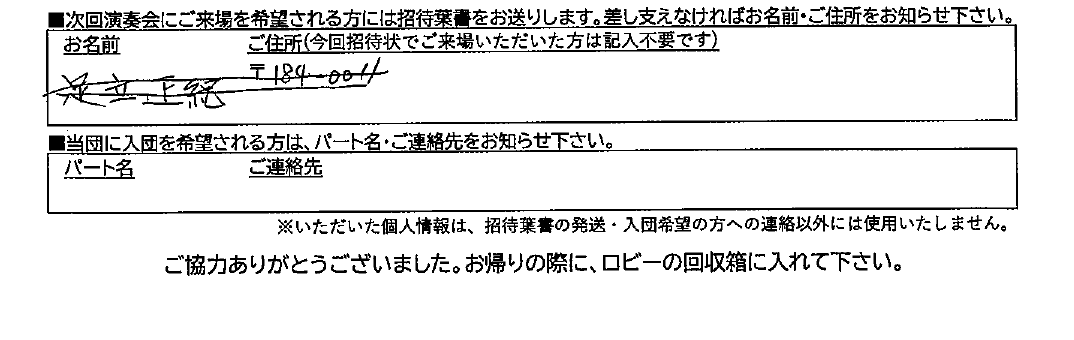 ■次回演奏会にご来場を希望される方には招待葉書をお送りします。差し支えなければお名前・ご住所をお知らせ下さい。
お名前 ご住所(今回招待状でご来場いただいた方は記入不要です)
足立正紀 〒184-0011
■当団に入団を希望される方は、パート名・ご連絡先をお知らせ下さい。
パート名 ご連絡先
※いただいた個人情報は、招待葉書の発送・入団希望の方への連絡以外には使用いたしません。
ご協力ありがとうございました。お帰りの際に、ロビーの回収箱に入れて下さい。